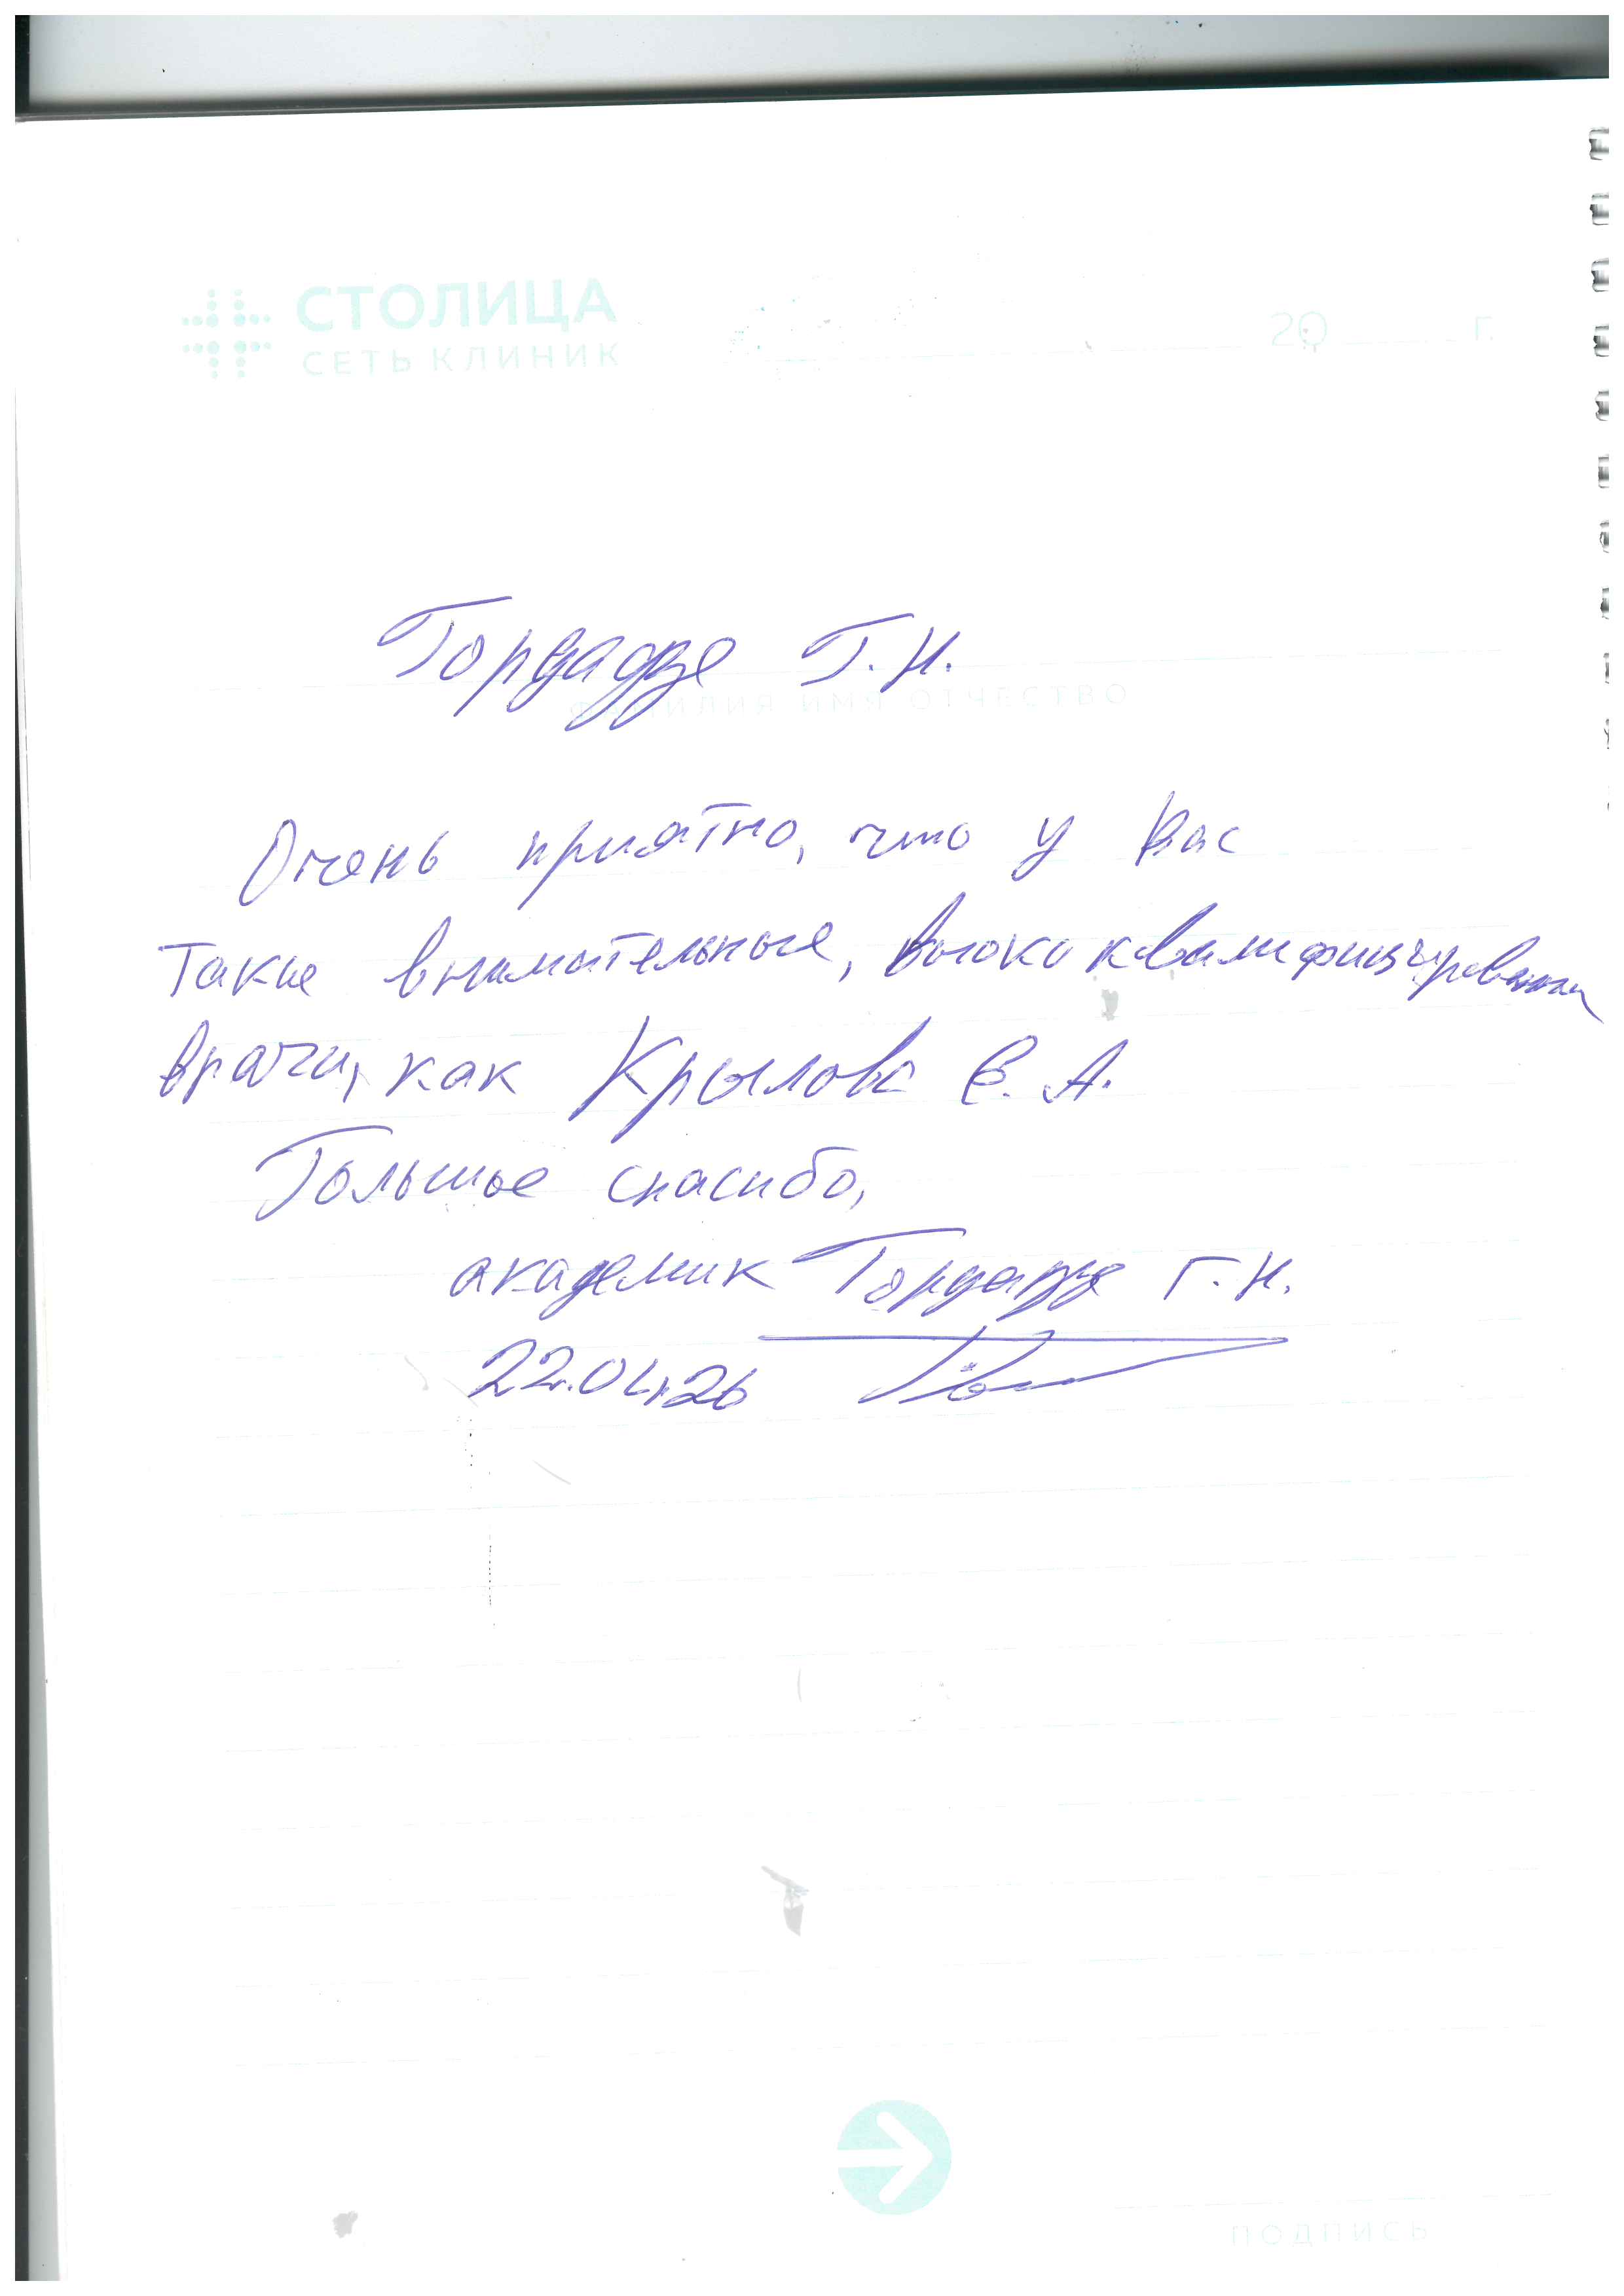 СТОЛИЦА
СЕТЬ КЛИНИК
20 г.
Гордадзе Г.Н.
ФАМИЛИЯ ИМЯ ОТЧЕСТВО
Очень приятно, что у Вас
такие внимательные, высококвалифицированные
врачи, как Крылова Е. А.
Большое спасибо,
академик Гордадзе Г.Н.
22.04.26
ПОДПИСЬ